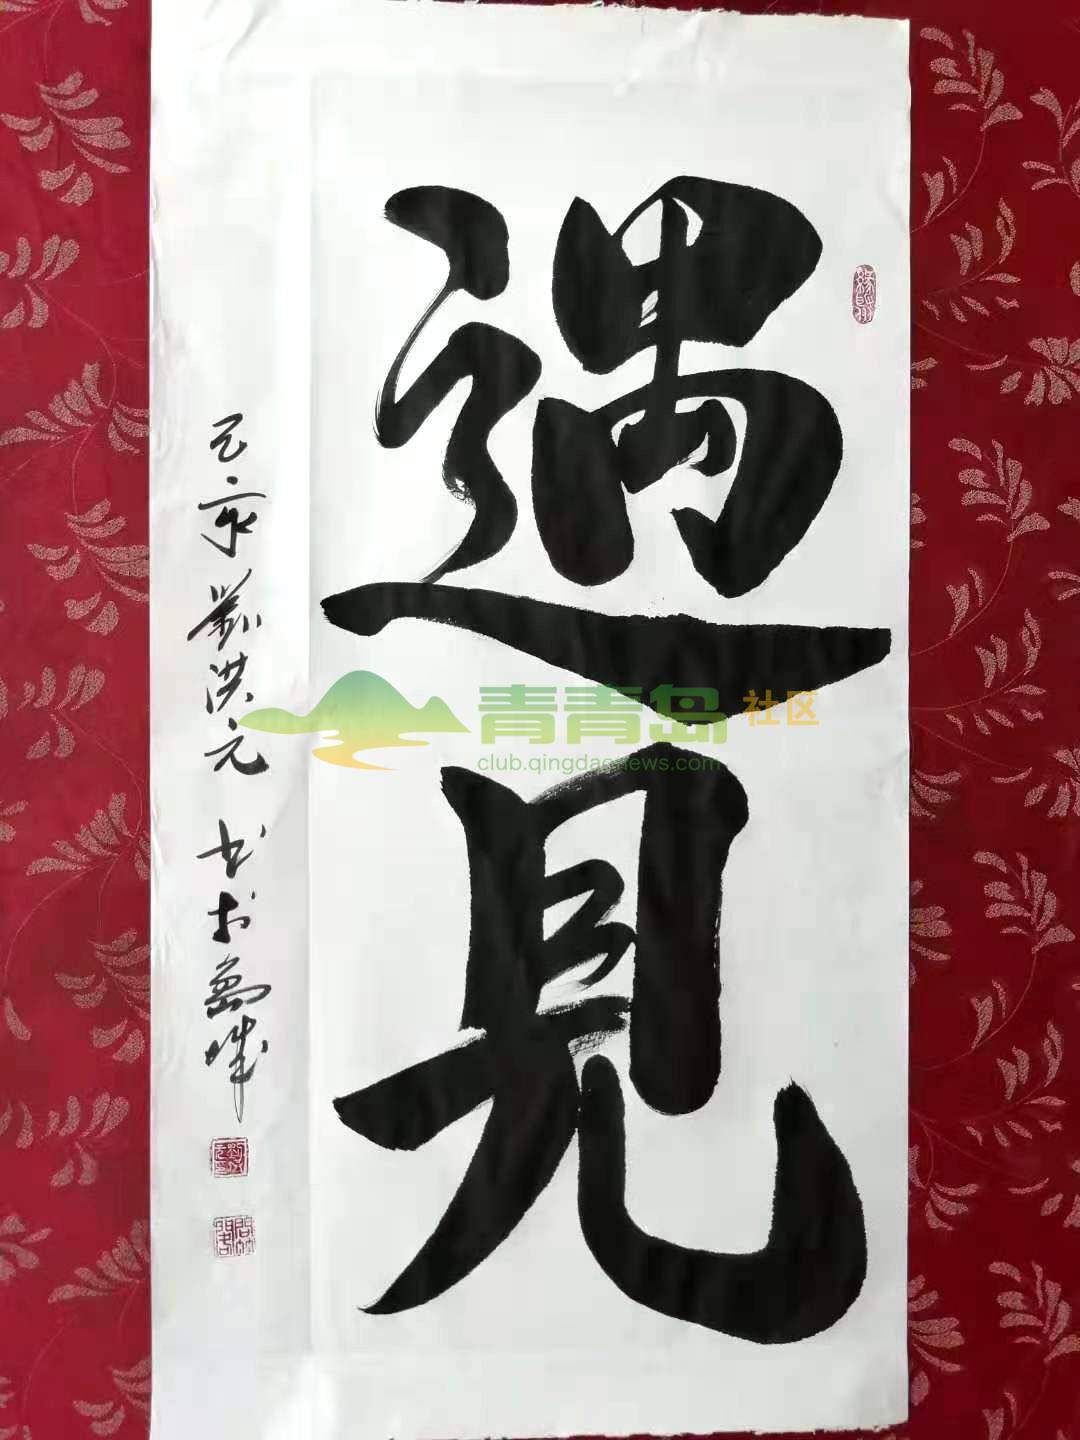 遇見
己亥劉洪元書於島城
青青岛社区
club.qingdaonews.com